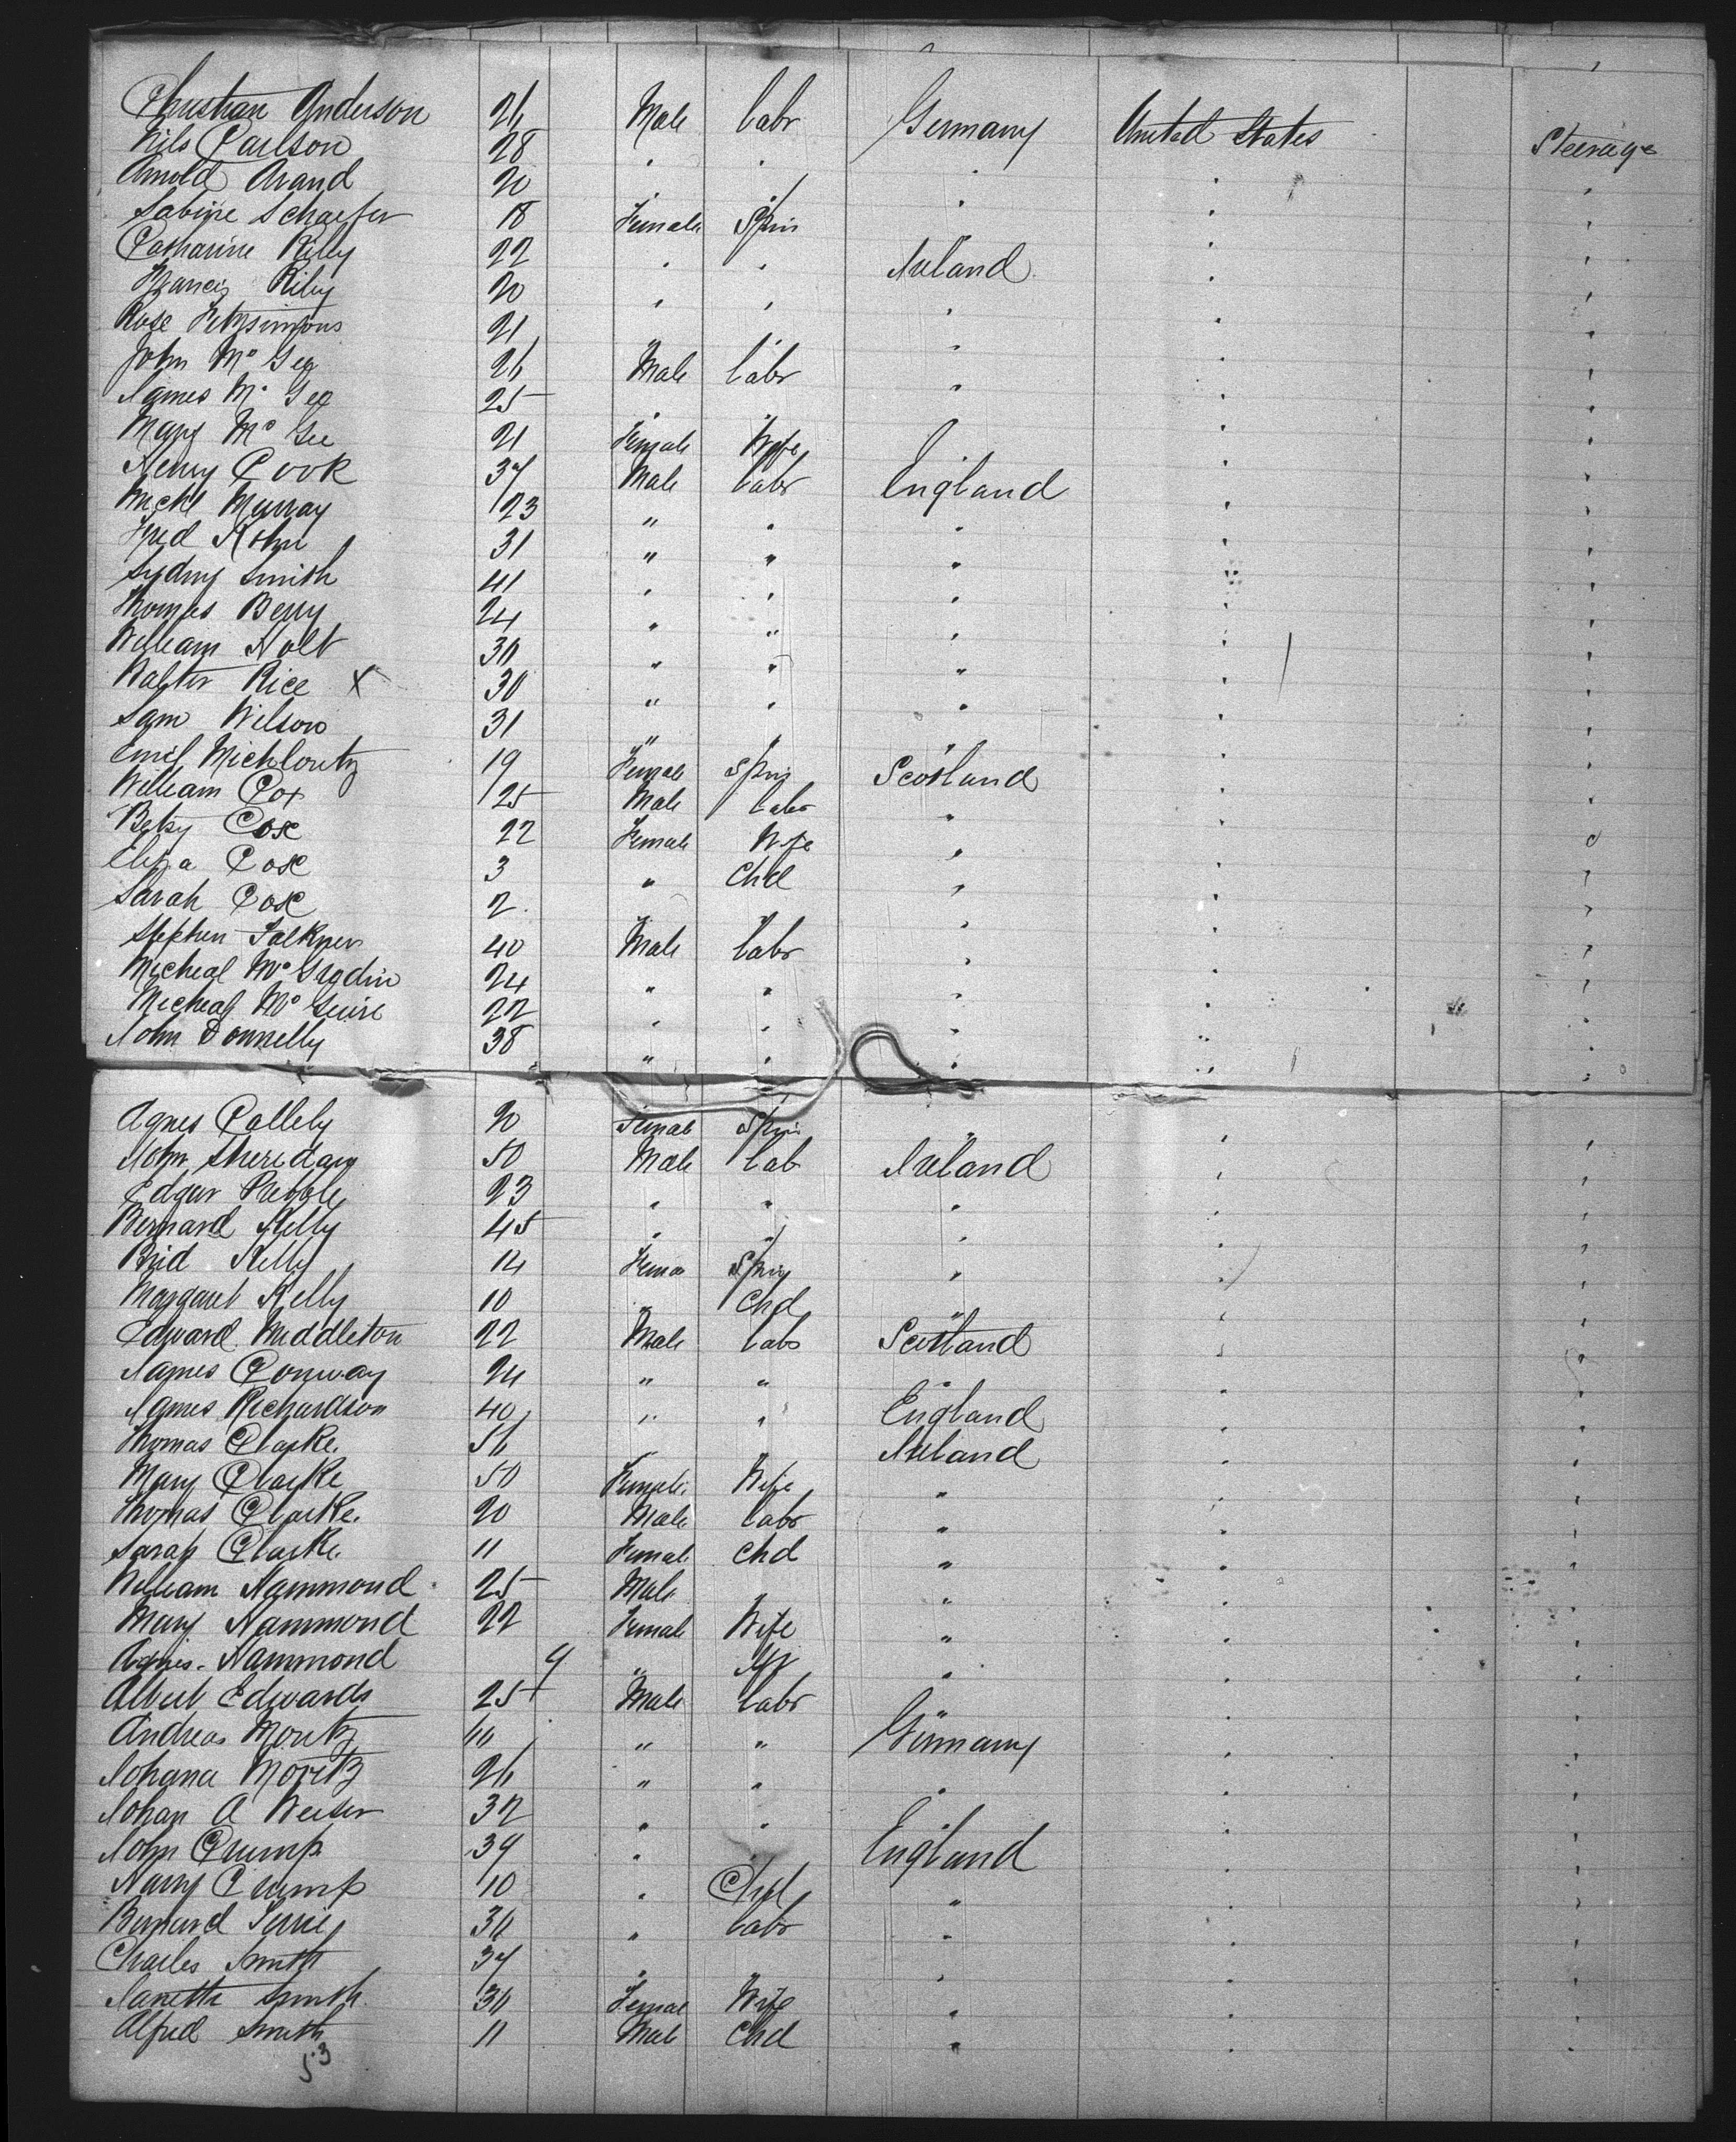 Christian Anderson 26 Male Labr Germany United States Steerage
Nils Carlson 28 " " " " "
Arnold Arand 20 " " " " "
Sabine Schaefer 18 Female Spin " " "
Catharine Riley 22 " " Ireland " "
Francis Riley 20 " " " " "
Rose Fitzsimons 21 " " " " "
John Mc Gee 26 Male Labr " " "
James Mc Gee 25 " " " " "
Mary Mc Gee 21 Female Wife " " "
Henry Cook 37 Male Labr England " "
Michl Murray 23 " " " " "
Fred Kohn 31 " " " " "
Sydny Smith 41 " " " " "
Thomas Berry 24 " " " " "
William Holt 36 " " " " "
Walter Rice X 30 " " " " "
Sam Wilson 31 " " " " "
Emil 19 Female Spin Scotland " "
William Cox 25 Male Labr " " "
Betsy Cox 22 Female Wife " " "
Eliza Cox 3 " Chd " " "
Sarah Cox 2 " " " " "
Stephen Falkner 40 Male Labr " " "
Micheal Mc 24 " " " " "
Micheal Mc Guire 22 " " " " "
John Donnelly 38 " " " " "
Agnes 20 Female Spin " " "
John Sheridan 50 Male Lab Ireland " "
Edgar 23 " " " " "
Bernard Kelly 45 " " " " "
Brid Kelly 14 Fema Spin " " "
Margaret Kelly 10 " Chd " " "
Edward Middleton 22 Male Labr Scotland " "
James Conway 24 " " " " "
James Richardson 40 " " England " "
Thomas Clarke 56 " " Ireland " "
Mary Clarke 50 Female Wife " " "
Thomas Clarke 20 Male Labr " " "
Sarah Clarke 11 Female Chd " " "
William Hammond 25 Male " " "
Mary Hammond 22 Female Wife " " "
Agnes Hammond 9 " Inf " " "
Albert Edwards 25 Male Labr " " "
Andreas Moritz " " Germany " "
Johana Moritz 26 " " " " "
Johan A Weiser 32 " " " " "
John Crump 39 " " England " "
Harry Crump 10 " Chd " " "
Bernard 36 " Labr " " "
Charles Smith 37 " " " " "
Janette Smith 36 Female Wife " " "
Alfred Smith 11 Male Chd " " "
53